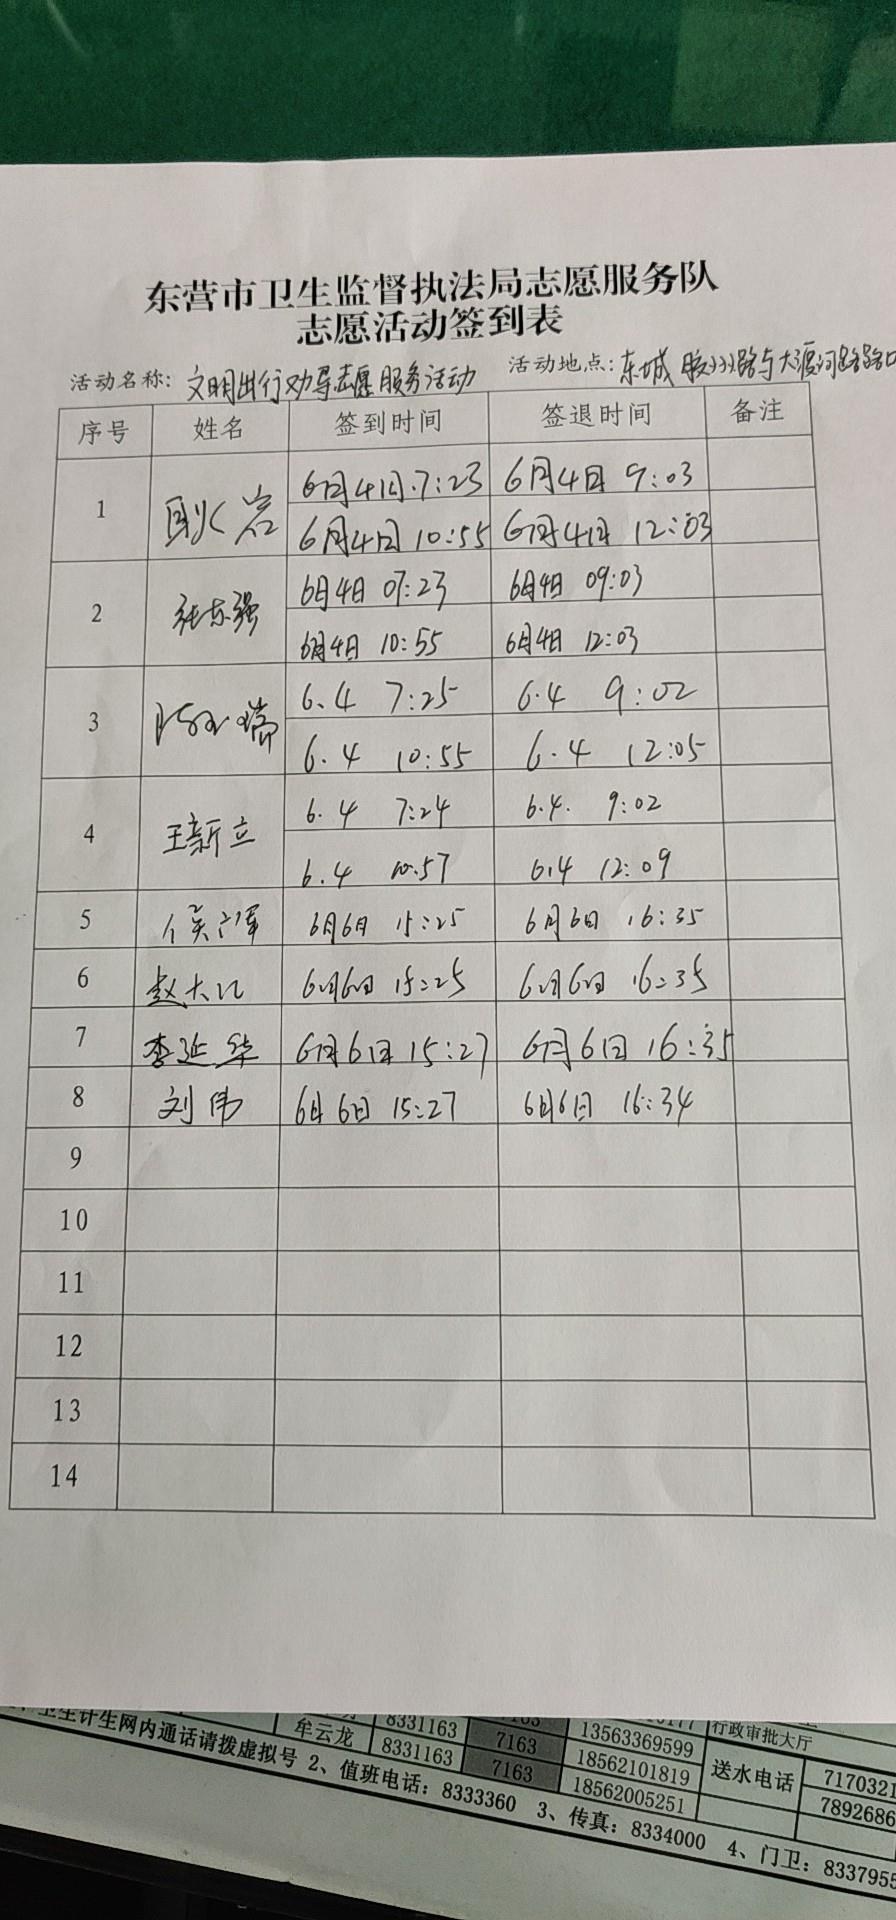 东营市卫生监督执法局志愿服务队
志愿活动签到表
活动名称: 文明出行劝导志愿服务活动 活动地点: 东城 胶州路与大渡河路路口
序号 姓名 签到时间 签退时间 备注
1 6月4日 7:23 6月4日 9:03
6月4日 10:55 6月4日 12:03
2 张东强 6月4日 07:23 6月4日 09:03
6月4日 10:55 6月4日 12:03
3 6.4 7:25 6.4 9:02
6.4 10:55 6.4 12:05
4 王新立 6.4 7:24 6.4. 9:02
6.4 10.57 6.4 12:09
5 6月6日 15:25 6月6日 16:35
6 6月6日 15:25 6月6日 16:35
7 李延华 6月6日 15:27 6月6日 16:35
8 刘伟 6月6日 15:27 6月6日 16:34
9
10
11
12
13
14
8331163 7163 13563369599 行政审批大厅
牟云龙 8331163 7163 18562101819 送水电话 7170321
18562005251 7892686
卫生计生网内通话请拨虚拟号 2、值班电话: 8333360 3、传真: 8334000 4、门卫: 8337955